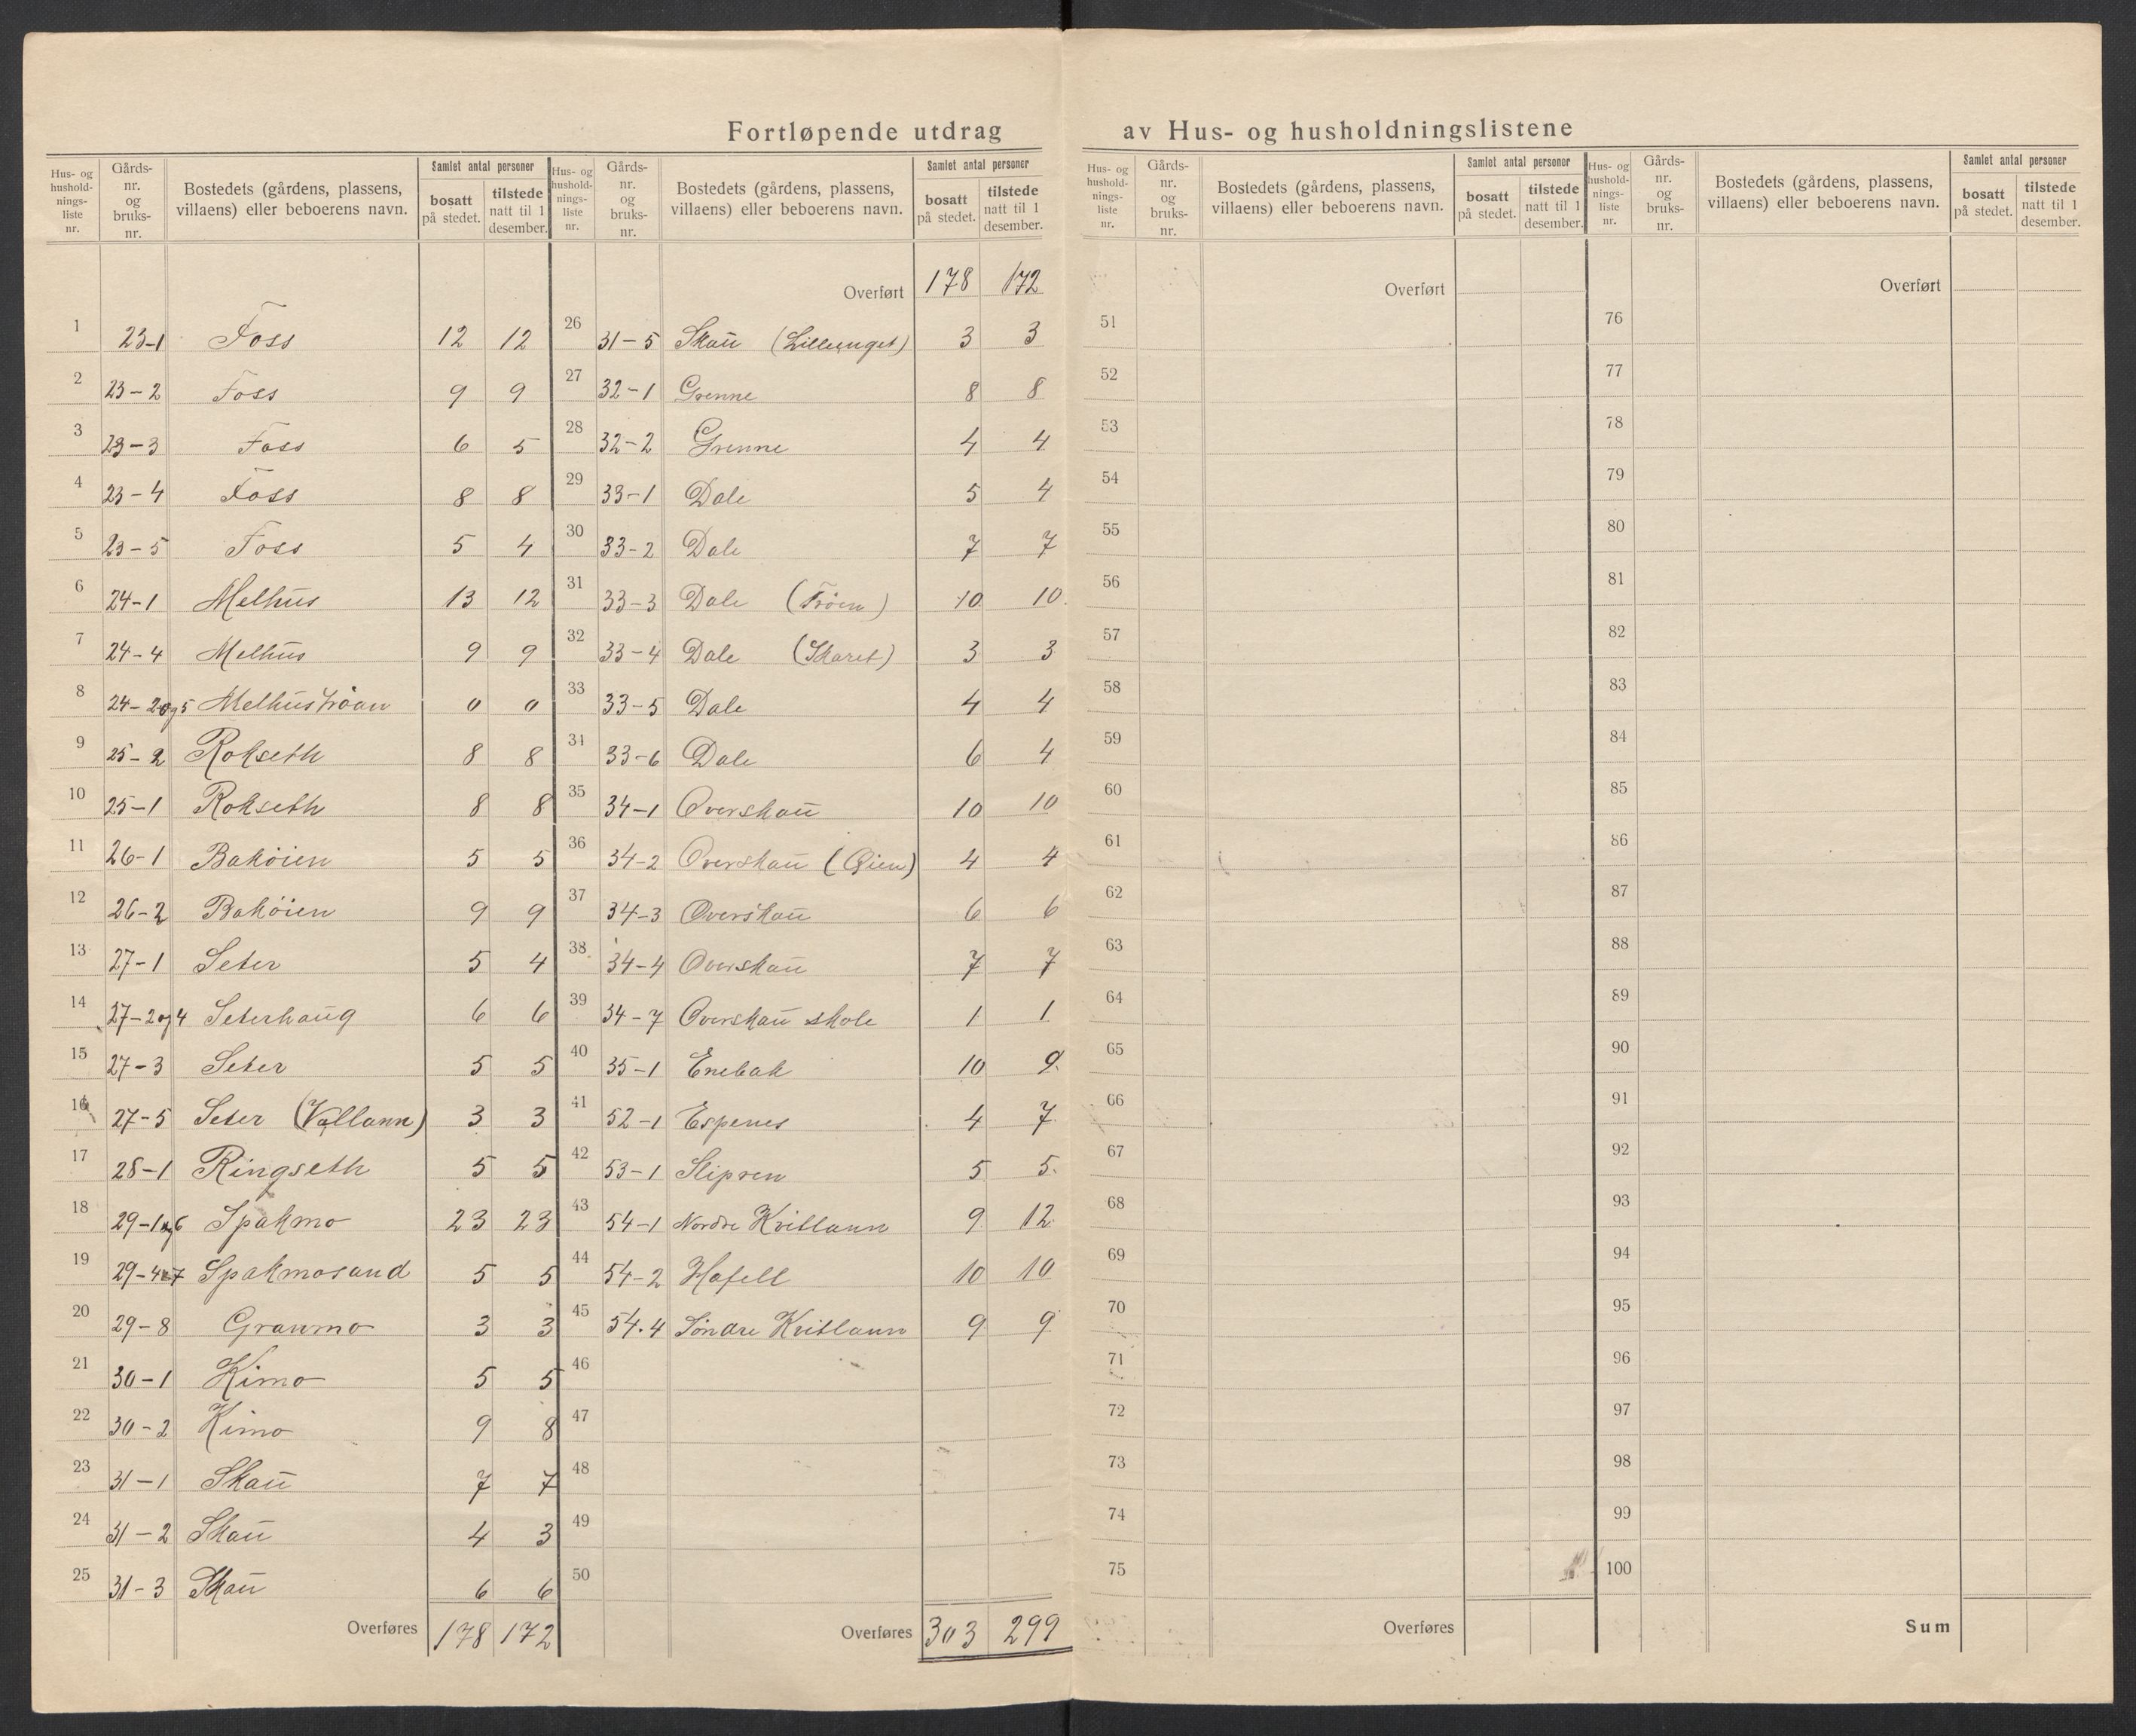 Fortløpende utdrag av Hus- og husholdningslistene
Hus- og hushold-nings-liste nr. Gårds-nr. og bruks-nr. Bostedets (gårdens, plassens, villaens) eller beboerens navn. Samlet antal personer bosatt på stedet. tilstede natt til 1 desember.
1 23-1 Foss 12 12
2 23-2 Foss 9 9
3 23-3 Foss 6 5
4 23-4 Foss 8 8
5 23-5 Foss 5 4
6 24-1 Melhus 13 12
7 24-4 Melhus 9 9
8 24-2og5 Melhustrøan 0 0
9 25-2 Rokseth 8 8
10 25-1 Rokseth 8 8
11 26-1 Bakøien 5 5
12 26-2 Bakøien 9 9
13 27-1 Seter 5 4
14 27-2og4 Seterhaug 6 6
15 27-3 Seter 5 5
16 27-5 Seter (Vollann) 3 3
17 28-1 Ringseth 5 5
18 29-1og6 Spakmo 23 23
19 29-4 7 Spakmosand 5 5
20 29-8 Granmo 3 3
21 30-1 Kimo 5 5
22 30-2 Kimo 9 8
23 31-1 Skau 7 7
24 31-2 Skau 4 3
25 31-3 Skau 6 6
Overføres 178 172
Hus- og hushold-nings-liste nr. Gårds-nr. og bruks-nr. Bostedets (gårdens, plassens, villaens) eller beboerens navn. Samlet antal personer bosatt på stedet. tilstede natt til 1 desember.
Overført 178 172
26 31-5 Skau (Lilleenget) 3 3
27 32-1 Grenne 8 8
28 32-2 Grenne 4 4
29 33-1 Dale 5 4
30 33-2 Dale 7 7
31 33-3 Dale (Trøen) 10 10
32 33-4 Dale (Skaret) 3 3
33 33-5 Dale 4 4
34 33-6 Dale 6 4
35 34-1 Overskau 10 10
36 34-2 Overskau (Øien) 4 4
37 34-3 Overskau 6 6
38 34-4 Overskau 7 7
39 34-7 Overskau skole 1 1
40 35-1 Enebak 10 9
41 52-1 Espenes 4 7
42 53-1 Slipren 5 5
43 54-1 Nordre Kvitlann 9 12
44 54-2 Hafell 10 10
45 54.4 Søndre Kvitlann 9 9
46
47
48
49
50
Overføres 303 299
Hus- og hushold-nings-liste nr. Gårds-nr. og bruks-nr. Bostedets (gårdens, plassens, villaens) eller beboerens navn. Samlet antal personer bosatt på stedet. tilstede natt til 1 desember.
Overført
51
52
53
54
55
56
57
58
59
60
61
62
63
64
65
66
67
68
69
70
71
72
73
74
75
Overføres
Hus- og hushold-nings-liste nr. Gårds-nr. og bruks-nr. Bostedets (gårdens, plassens, villaens) eller beboerens navn. Samlet antal personer bosatt på stedet. tilstede natt til 1 desember.
Overført
76
77
78
79
80
81
82
83
84
85
86
87
88
89
90
91
92
93
94
95
96
97
98
99
100
Sum